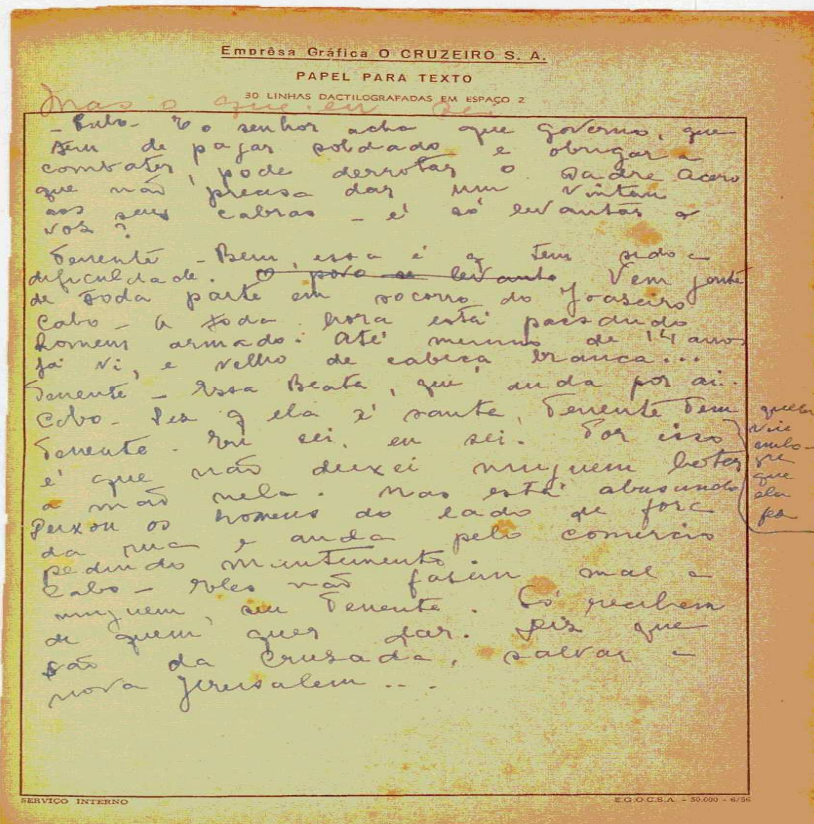 Emprêsa Gráfica O CRUZEIRO S. A.
PAPEL PARA TEXTO
30 LINHAS DACTILOGRAFADAS EM ESPAÇO 2
Mas o que eu sei
- Cabo - E o senhor acha que governo, que
tem de pagar soldado e obrigar a
combater, pode derrotar o Padre Cicero
que não precisa dar um vintem
aos seus cabras - é só levantar a
voz?
Tenente - Bem, essa é q tem sido a
dificuldade. O povo se levanta Vem gente
de toda parte em socorro do Joaseiro
Cabo - A toda hora está passando
homens armado. Até menino de 14 anos
já vi, e velho de cabeça branca...
Tenente - Essa Beata, que anda por ai..
Cabo - Diz q ela é santa, Tenente Tem
Tenente - Eu sei, eu sei. Por isso
é que não deixei ninguem botar
a mão nela. Mas está abusando
Deixou os homens do lado de fora
da rua e anda pelo comercio
pedindo mantimento
Cabo - Eles não fazem mal a
ninguem, seu Tenente. Só recebem
de quem quer dar. Diz que
são da Cruzada, salvar a
nova Jerusalem...
quem
que
ela
fez
SERVIÇO INTERNO
E.G.O.C.S.A. - 50.000 - 6/56